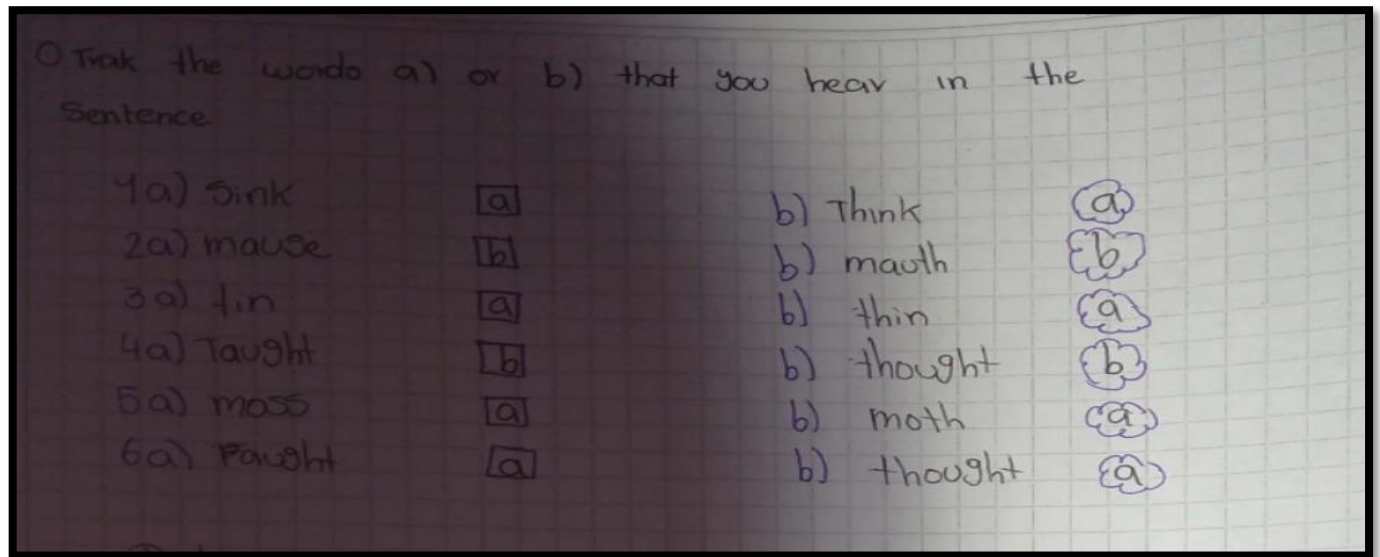 Trak the words a) or b) that you hear in the
Sentence
1a) Sink a b) Think a
2a) mause b b) mauth b
3a) tin a b) thin a
4a) Taught b b) thought b
5a) moss a b) moth a
6a) Paught a b) thought a